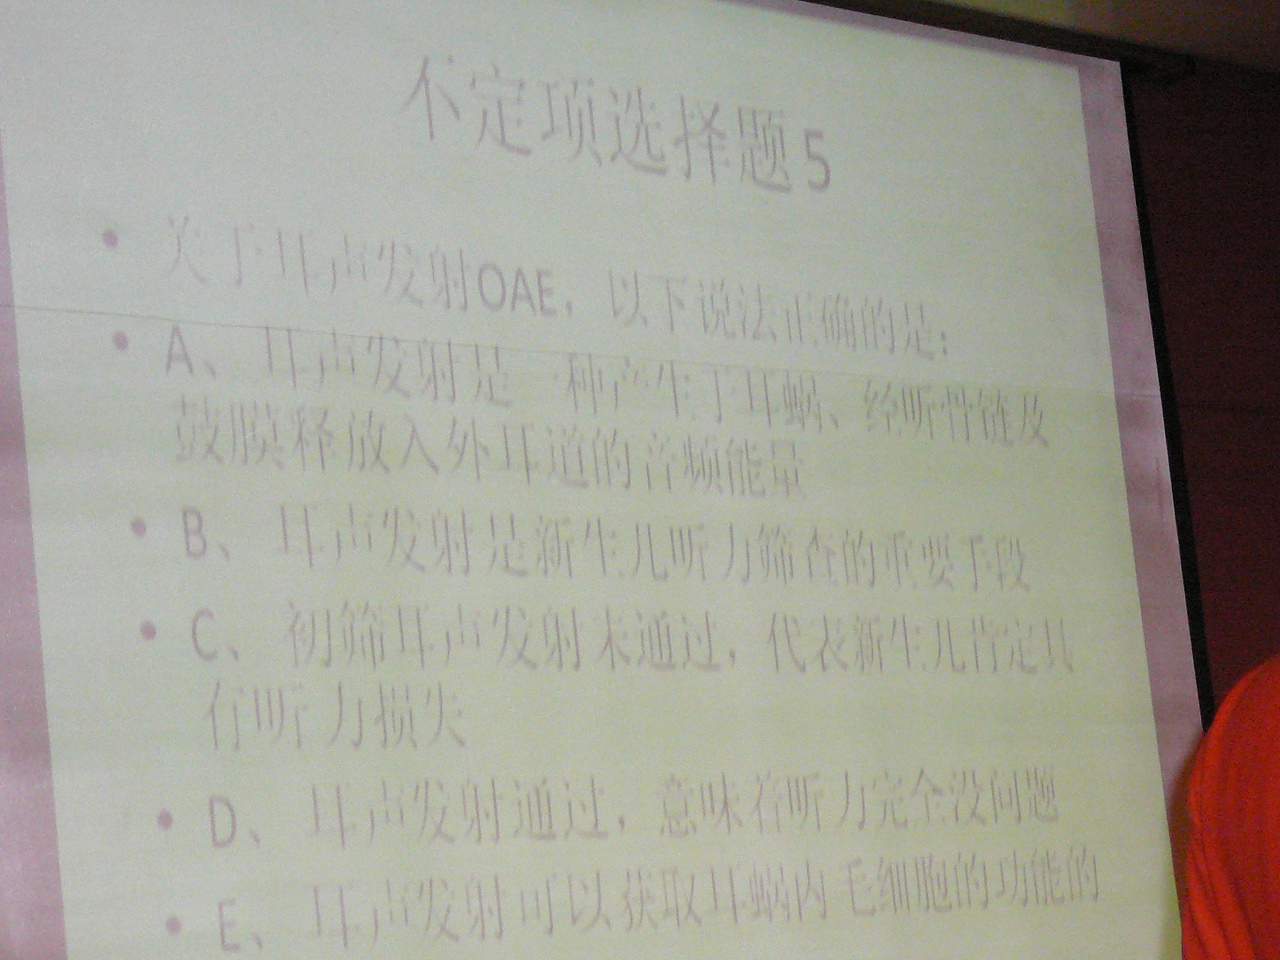 不定项选择题5
• 关于耳声发射OAE，以下说法正确的是：
• A、耳声发射是一种产生于耳蜗、经听骨链及
鼓膜释放入外耳道的音频能量
• B、耳声发射是新生儿听力筛查的重要手段
• C、初筛耳声发射未通过，代表新生儿肯定具
有听力损失
• D、耳声发射通过，意味着听力完全没问题
• E、耳声发射可以获取耳蜗内毛细胞的功能的